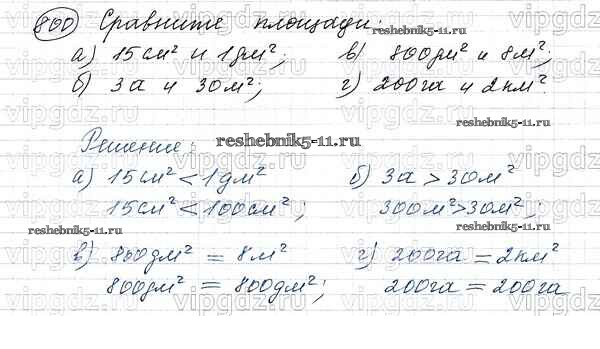 800 Сравните площади:
а) 15см² и 1дм²; в) 800дм² и 8м²;
б) 3а и 30м²; г) 200га и 2км².
Решение:
а) 15см² < 1дм² б) 3а > 30м²
15см² < 100см²; 300м² > 30м²;
в) 800дм² = 8м² г) 200га = 2км²
800дм² = 800дм²; 200га = 200га
reshebnik5-11.ru
reshebnik5-11.ru
reshebnik5-11.ru
reshebnik5-11.ru
reshebnik5-11.ru
vipgdz.ru